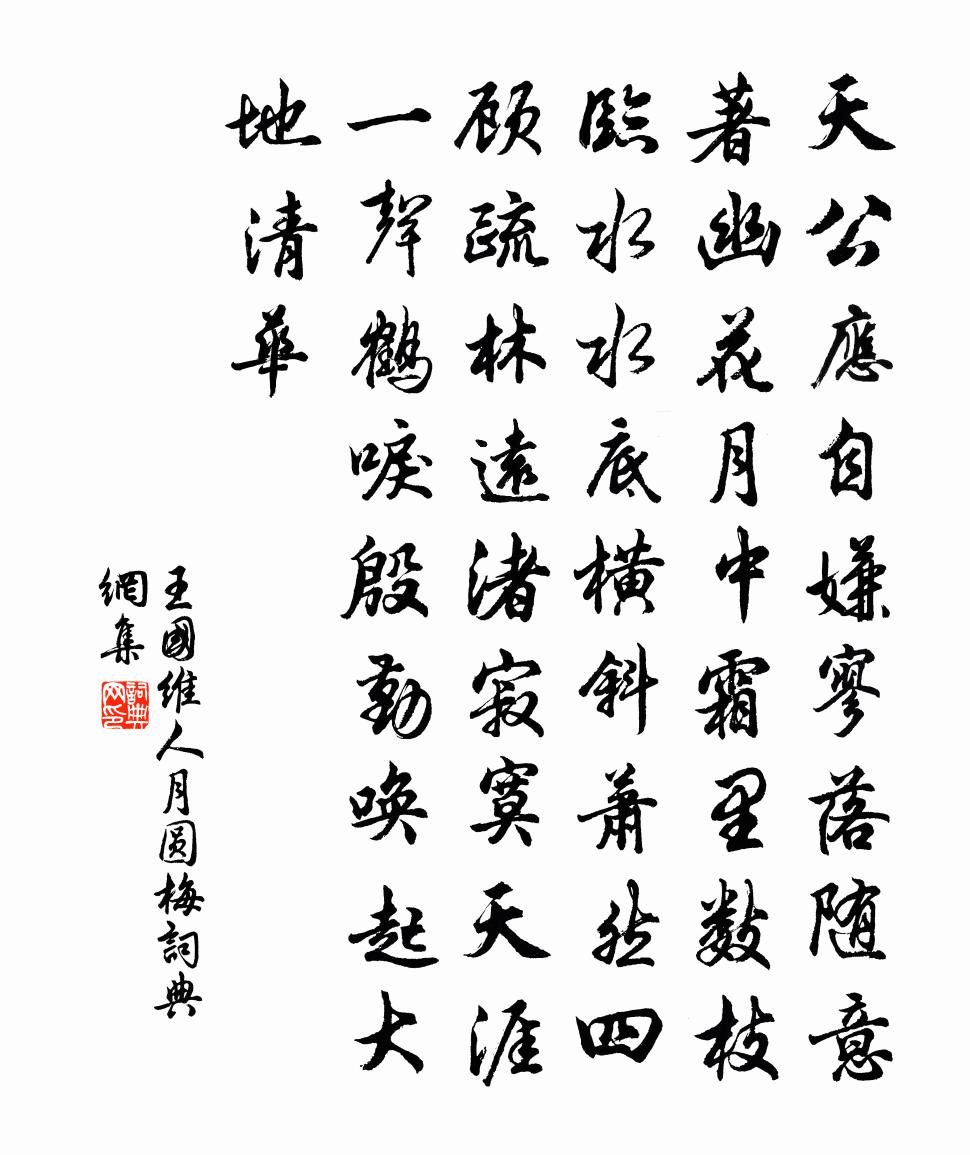 天公應自嫌寥落随意
著幽花月中霜里数枝
臨水水底横斜蕭然四
顾疏林遠渚寂寞天涯
一聲鶴唳殷勤唤起大
地清華
王國維人月圆梅詞典
網集
詞典网印